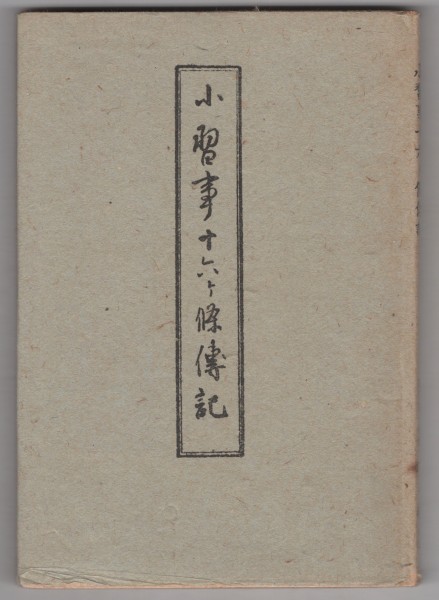 小習事十六ヶ條傳記